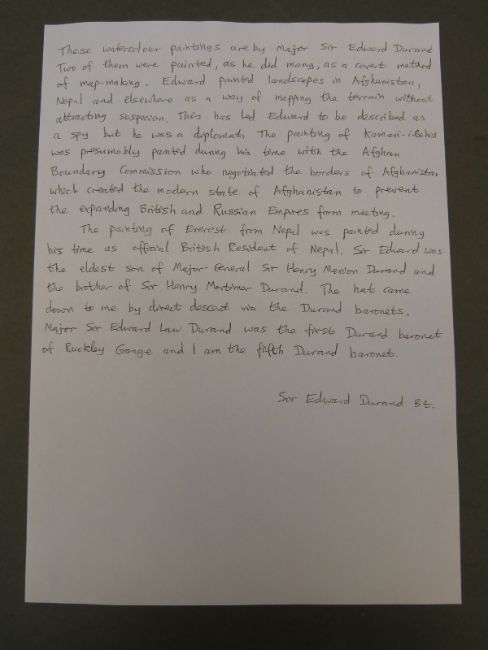 These watercolour paintings are by Major Sir Edward Durand
Two of them were painted, as he did many, as a covert method
of map-making. Edward painted landscapes in Afghanistan,
Nepal and elsewhere as a way of mapping the terrain without
attracting suspicion. This has led Edward to be described as
a spy but he was a diplomat. The painting of
was presumably painted during his time with the Afghan
Boundary Commission who negotiated the borders of Afghanistan
which created the modern state of Afghanistan to prevent
the expanding British and Russian Empires from meeting.
The painting of Everest from Nepal was painted during
his time as official British Resident of Nepal. Sir Edward was
the eldest son of Major-General Sir Henry Marion Durand and
the brother of Sir Henry Mortimer Durand. The hat came
down to me by direct descent via the Durand baronets.
Major Sir Edward Law Durand was the first Durand baronet
of Ruckley Grange and I am the fifth Durand baronet.
Sir Edward Durand Bt.